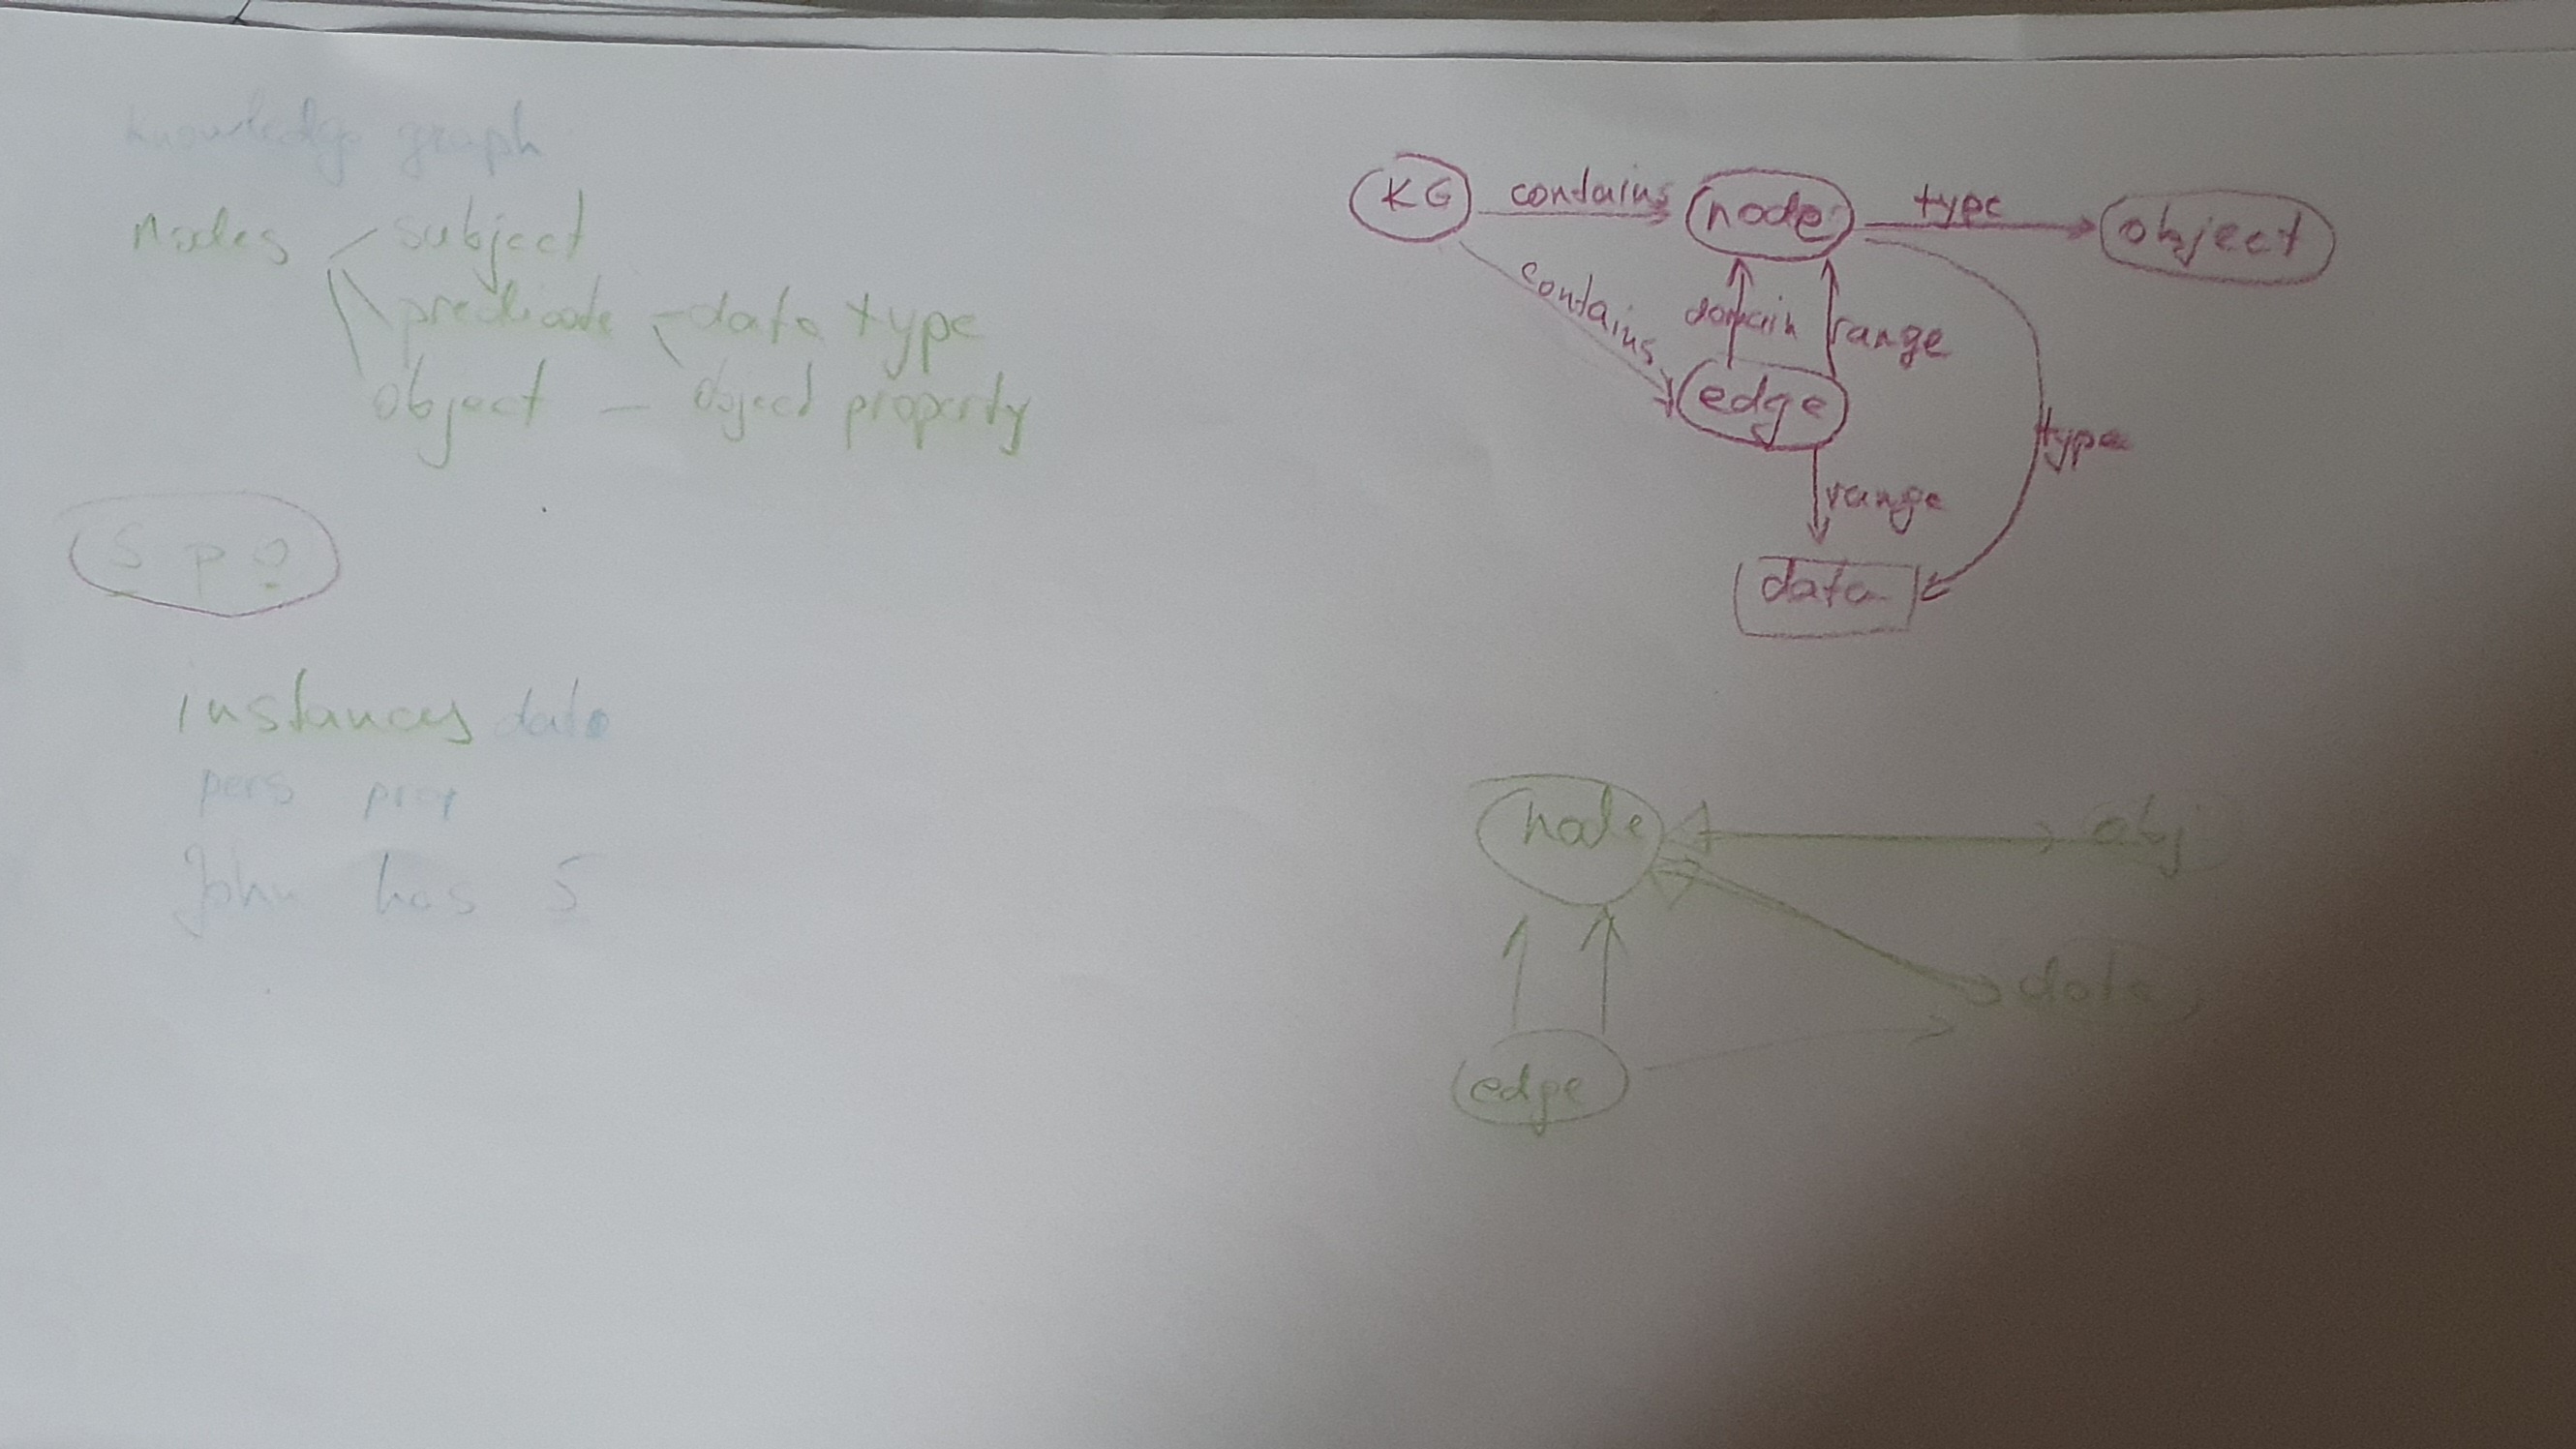 knowledge graph
nodes subject
predicate - data type
object - object property
S p o
instances data
pers prop
John has 5
KG contains node type object
contains domain range
edge type
range
data
node obj
data
edge